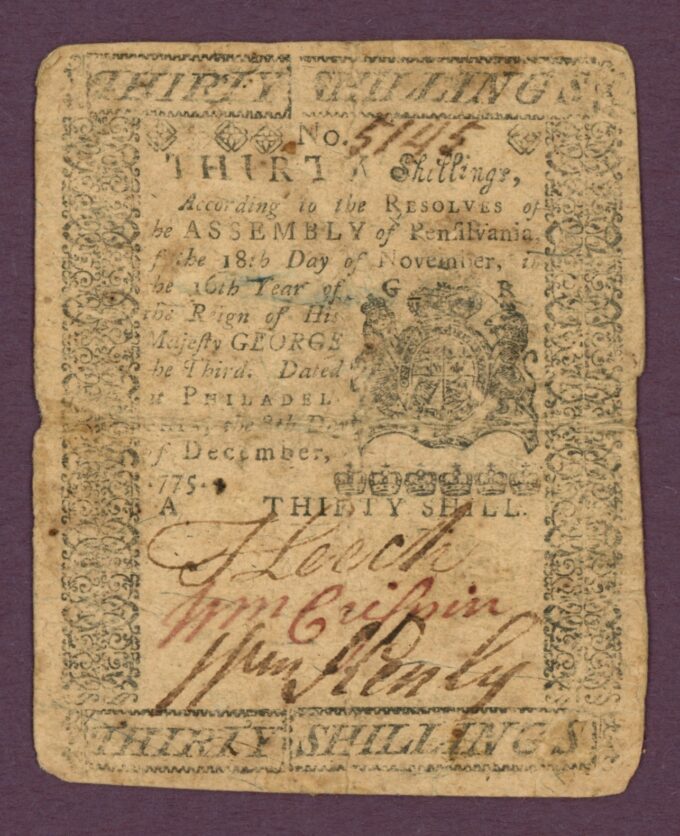 THIRTY SHILLINGS
No. 5145
THIRTY Shillings,
According to the RESOLVES of
he ASSEMBLY of Pensilvania,
f the 18th Day of November, in
he 16th Year of G R
the Reign of His
Majesty GEORGE
he Third. Dated
at PHILADEL-
the 8th Day
of December,
775.
A THIRTY SHILL.
T Leech
Wm Crispin
Wm
THIRTY SHILLINGS